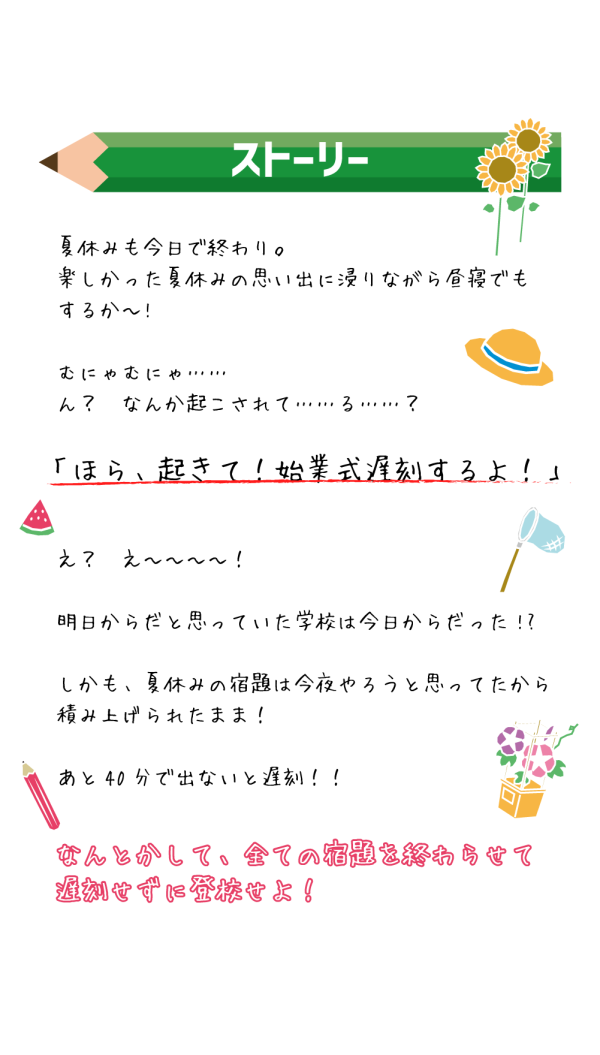 ストーリー
夏休みも今日で終わり。
楽しかった夏休みの思い出に浸りながら昼寝でも
するか〜!
むにゃむにゃ……
ん？　なんか起こされて……る……？
「ほら、起きて！始業式遅刻するよ！」
え？　え〜〜〜〜！
明日からだと思っていた学校は今日からだった!?
しかも、夏休みの宿題は今夜やろうと思ってたから
積み上げられたまま！
あと40分で出ないと遅刻！！
なんとかして、全ての宿題を終わらせて
遅刻せずに登校せよ！